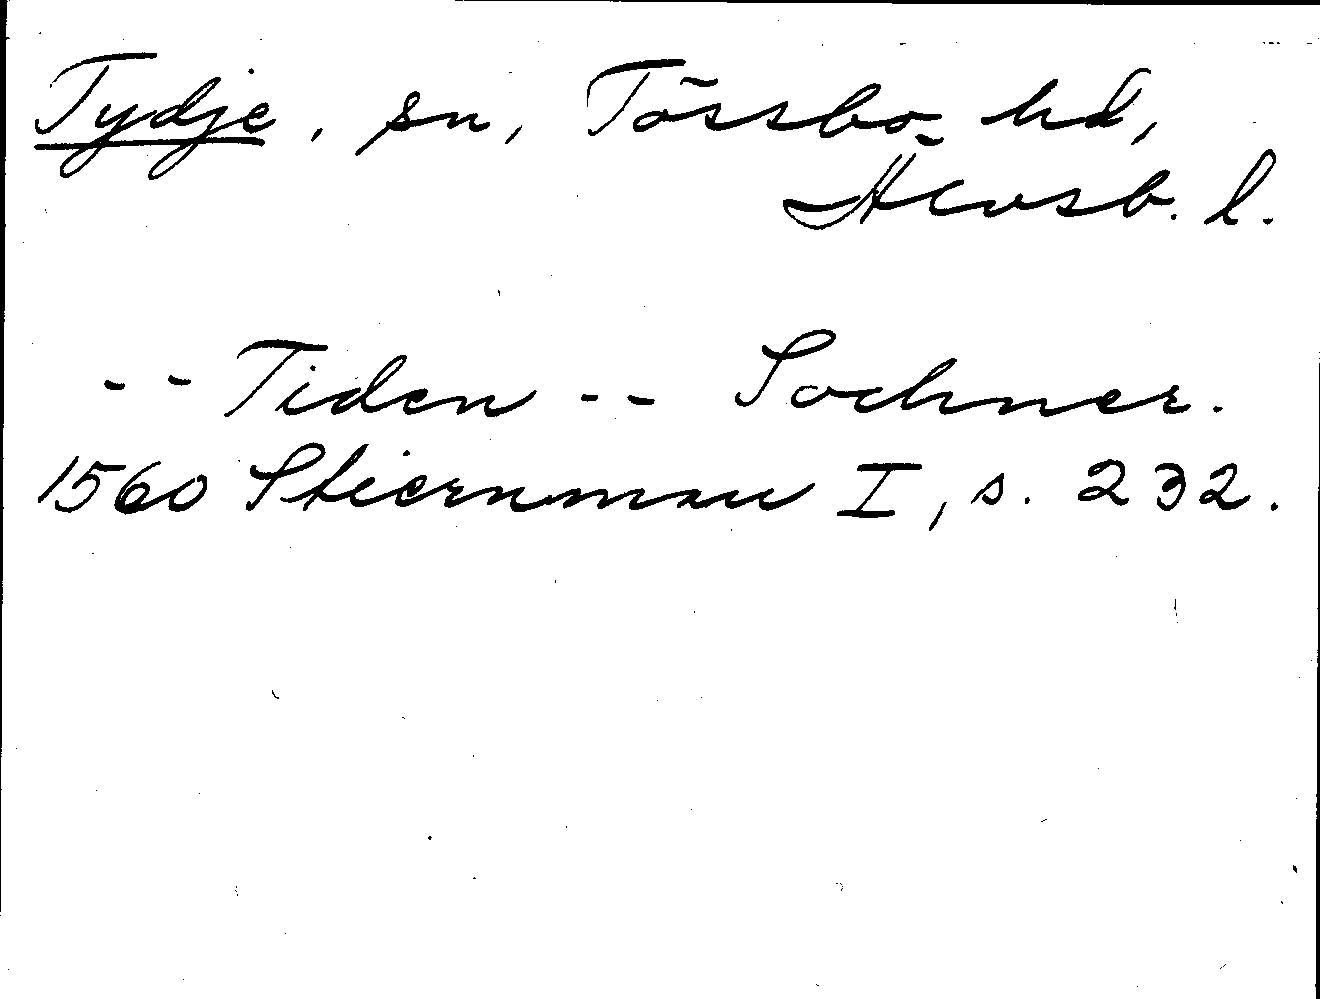 Tydje, sn, Tössbo hd,
Älvsb. l.
-- Tiden -- Sochner.
1560 Stiernman I, s. 232.